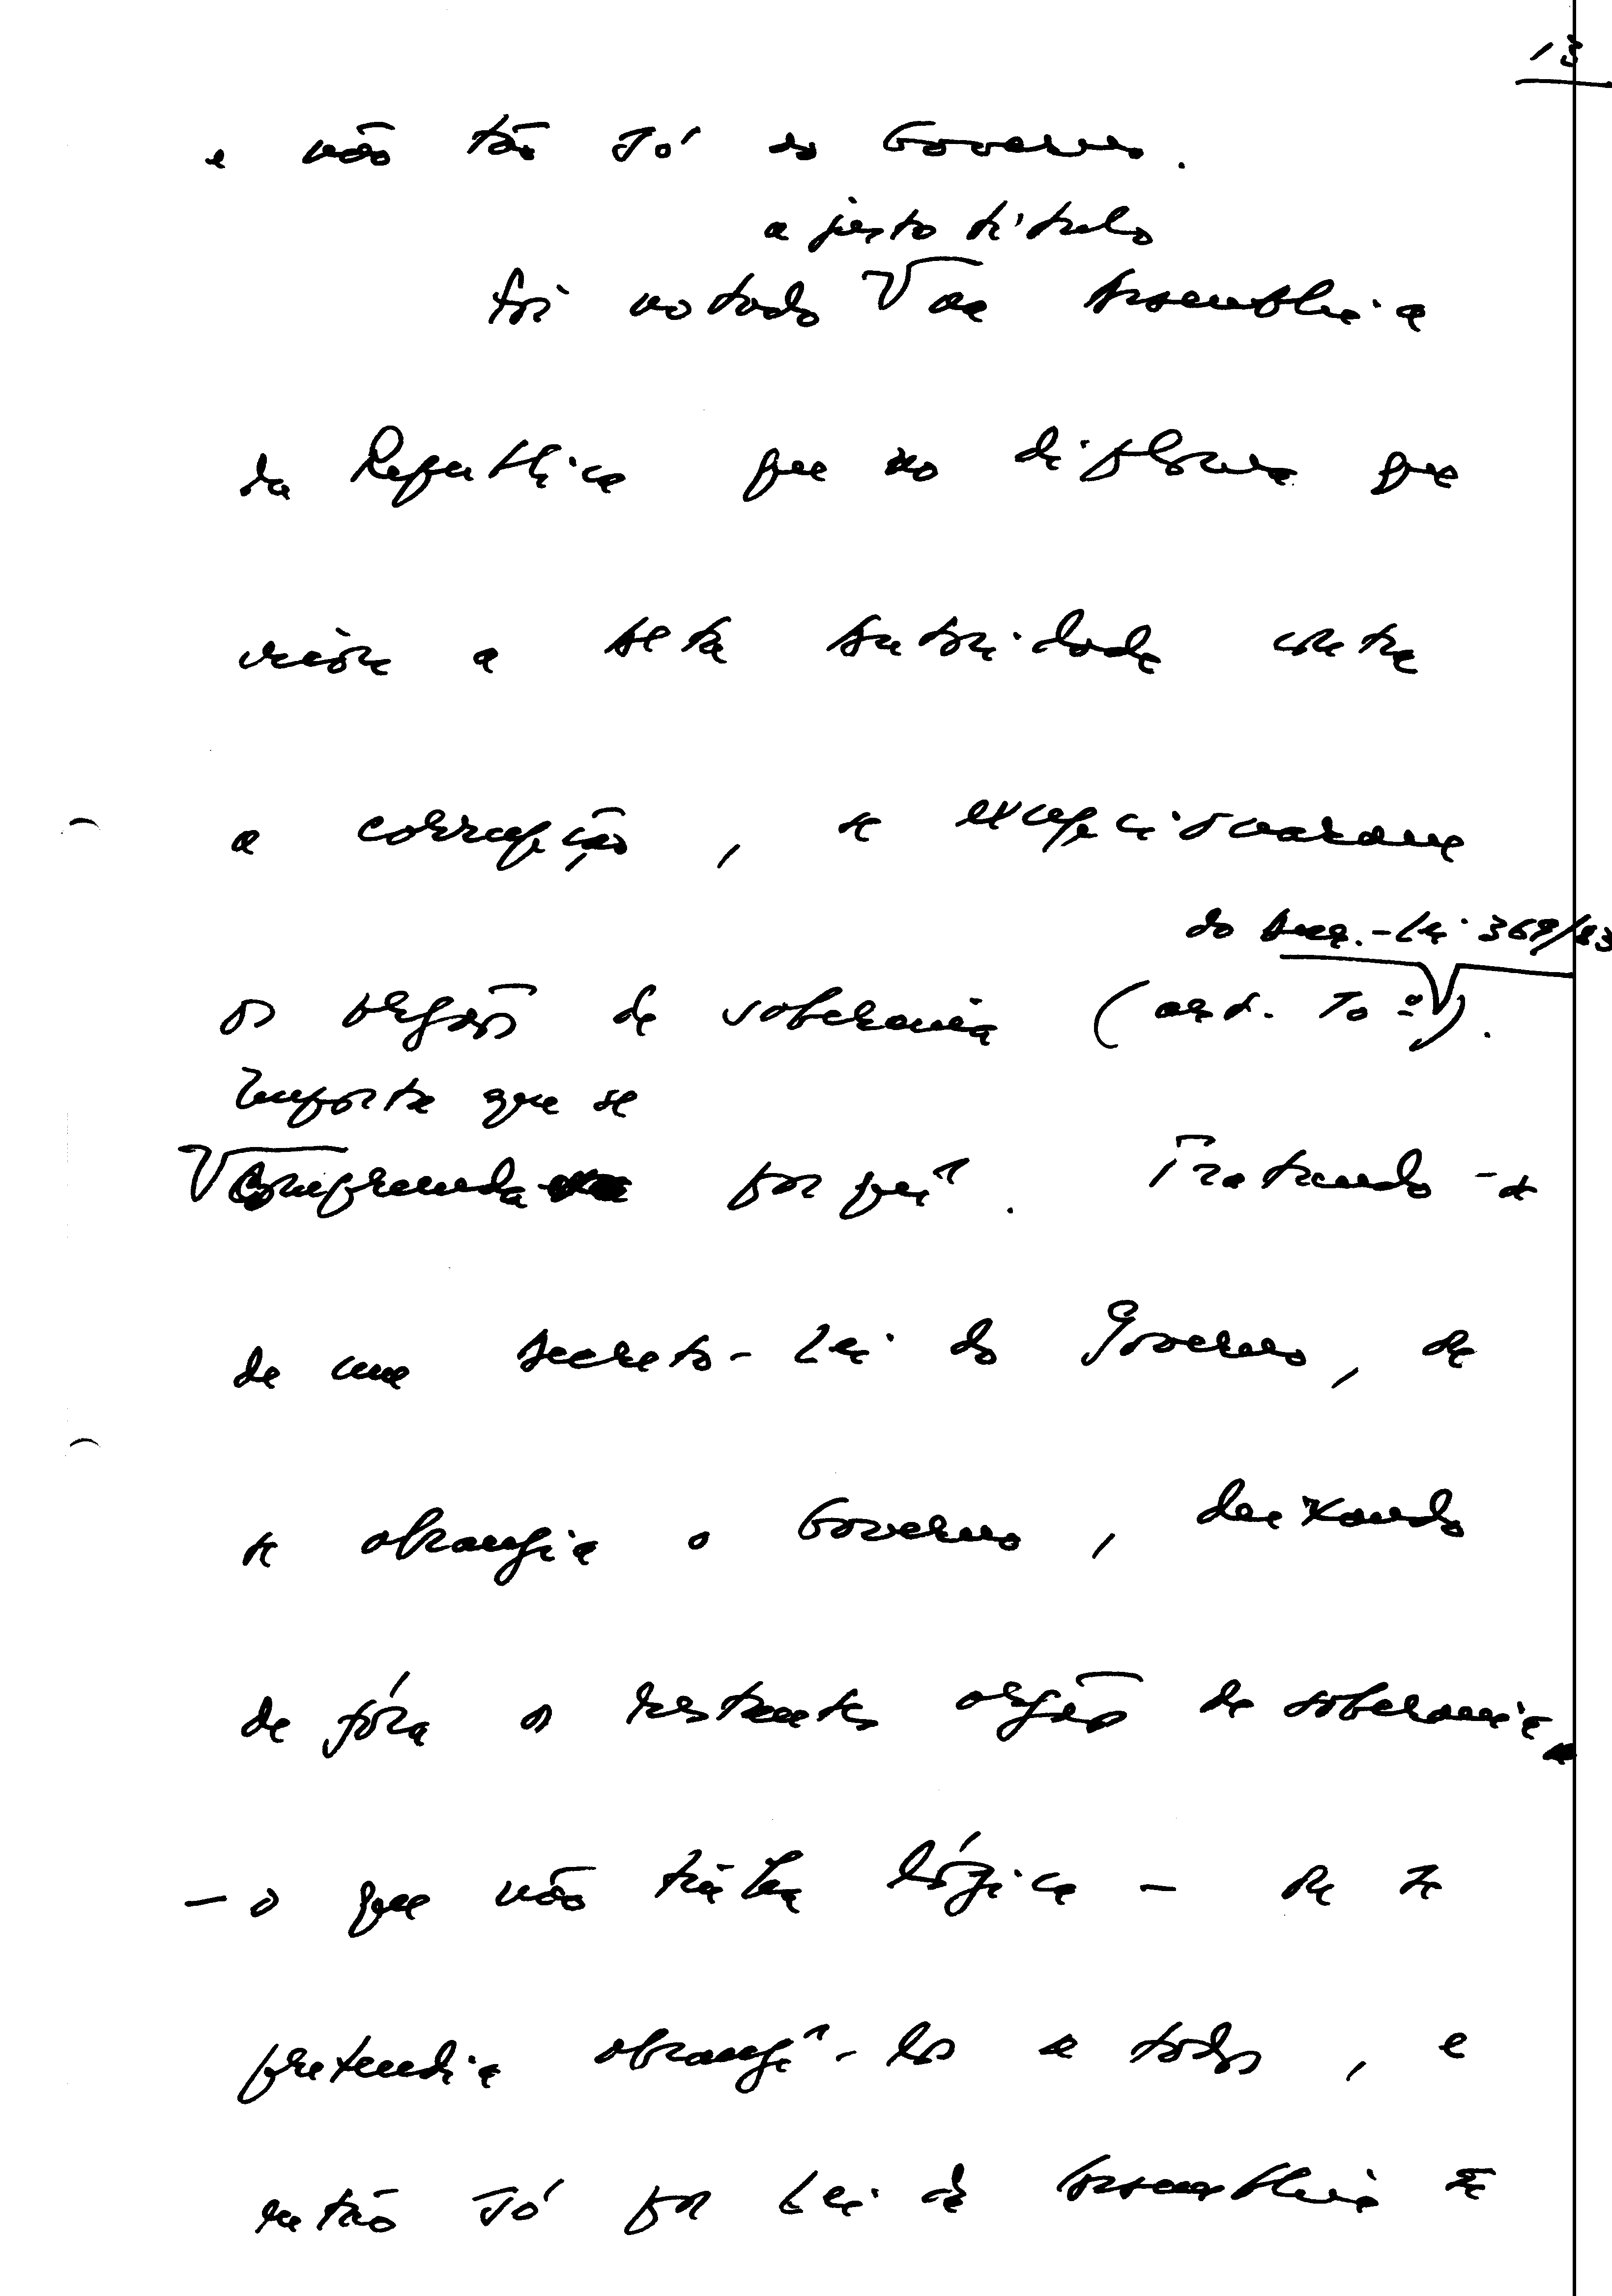 13
e não tão só do Governo.
a justo título
Foi notado na Assembleia
da República que no diploma que
criou a Alta Autoridade contra
a corrupção, se excepcionaram
do Dec.-Lei 369/83
os orgãos de soberania (art. To º).
Importa que se
Compreenda por quê. Tratando-se
de um Decreto-Lei do Governo, ou
se abrangia o Governo, deixando
de fóra os restantes orgãos de soberania
- o que não tinha lógica - ou se
pretendia abrangê-los a todos, e
então só por Lei da Assembleia se